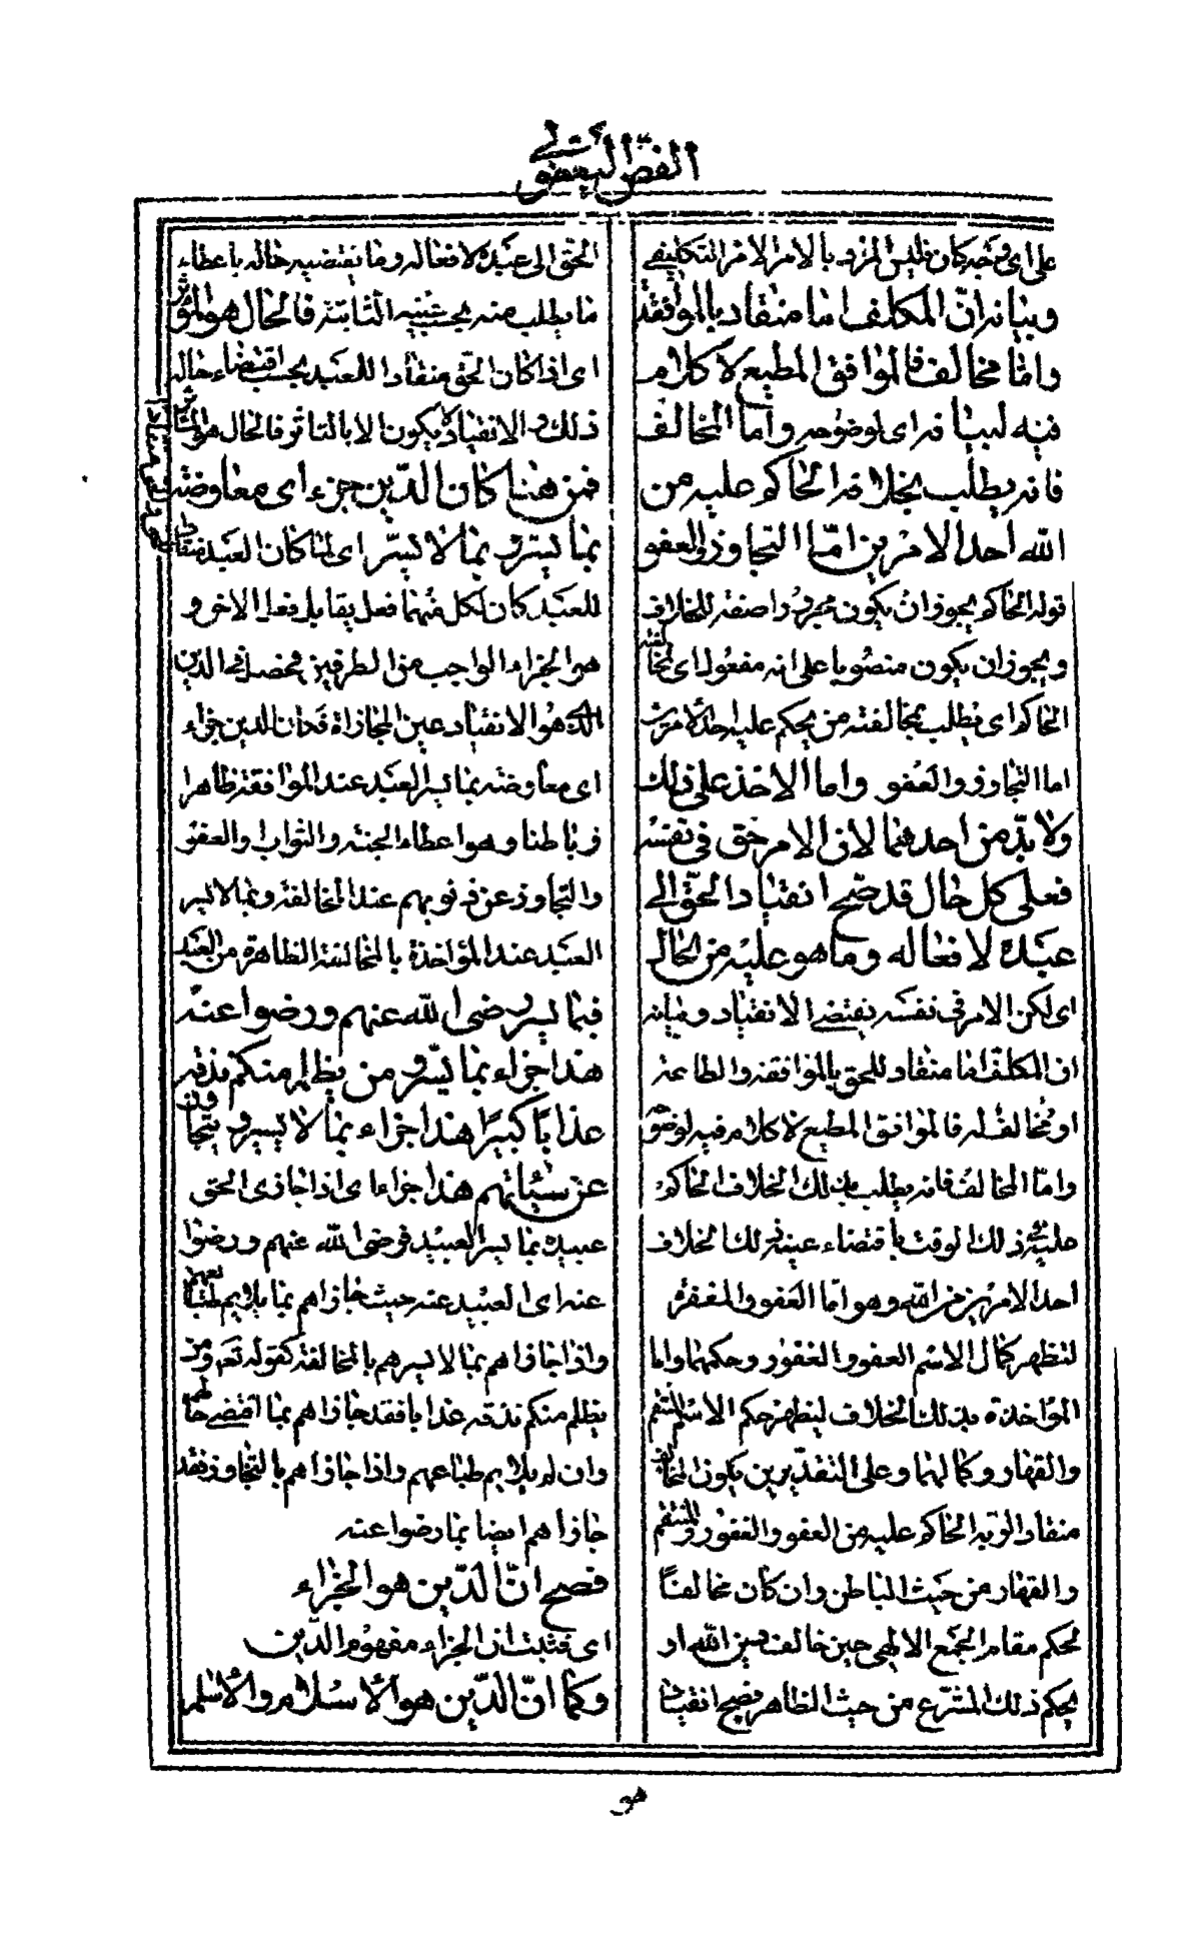 الفصّ اليعقوبي
على اى وجه كان فليس المراد بالامر الامر التكليفى
وبيانه انّ المكلف اما منقاد بالموافقة
واما مخالف فالموافق المطيع لا كلام
فيه لبيانه اى لوضوحه واما المخالف
فانه يطلب بخلافه الحاكم عليه من
الله احد الامرين امّا التجاوز والعفو
قوله الحاكم يجوز ان يكون مجرورا صفة للخلاف
ويجوز ان يكون منصوبا على انه مفعول اى بمخالفته
الحاكم اى يطلب بمخالفته من يحكم عليه احد الامرين
اما التجاوز والعفو واما الاخذ على ذلك
ولا بدّ من احدهما لان الامر حق فى نفسه
فعلى كل حال قد صح انقياد الحقّ الى
عبده لافعاله وما هو عليه من الحال
اى لكن الامر فى نفسه يقتضى الانقياد وبيانه
ان المكلف اما منقاد للحق بالموافقة والطاعة
او مخالف له فالموافق المطيع لا كلام فيه لوضوحه
واما المخالف فانه يطلب بذلك الخلاف الحاكم
عليه فى ذلك الوقت باقتضاء عينه ذلك الخلاف
احد الامرين من الله وهو اما العفو والمغفرة
لتظهر كمال الاسم العفو والغفور وحكمهما واما
المؤاخذة بذلك الخلاف ليظهر حكم الاسم المنتقم
والقهار وكمالهما وعلى التقديرين يكون المخالف
منقادا لربه الحاكم عليه من العفو والغفور والمنتقم
والقهار من حيث الباطن وان كان مخالفا
لحكم مقام الجمع الالهى حين خالف دين الله او
بحكم ذلك المشرع من حيث الظاهر فصح انقياد
الحق الى عبده لافعاله وما يقتضيه حاله باعطاء
ما يطلب منه بحسب عينه الثابتة فالحال هو المؤثر
اى اذا كان الحق منقادا للعبد بحسب اقتضاء حاله
ذلك والانقياد لا يكون الا بالتاثر فالحال هو المؤثر
فمن هنا كان الدّين جزاء اى معاوضة
بما يسر وبما لا يسرّ اى لما كان العبد منقادا
للعبد كان لكل منهما فعل يقابل فعل الاخر و
هو الجزاء الواجب من الطرفين فحصل فى الدين
الذى هو الانقياد عين المجازاة فكان الدين جزاء
اى معاوضة بما يسر العبد عند الموافقة ظاهرا
وباطنا وهو اعطاء الجنة والثواب والعفو
والتجاوز عن ذنوبهم عند المخالفة وبما لا يسر
العبد عند المؤاخذة بالمخالفة الظاهرة من العبد
فبما يسر رضى الله عنهم ورضوا عنه
هذا جزاء بما يسّر ومن يظلم منكم نذقه
عذابا كبيرا هذا جزاء بما لا يسر ونتجاوز
عن سيئاتهم هذا جزاء اى اذا جازى الحق
عبيده بما يسر العبيد فرضى الله عنهم ورضوا
عنه اى العبيد عنه حيث جازاهم بما يلايم طباعهم
واذا جازاهم بما لا يسرهم بالمخالفة كقوله تعم ومن
يظلم منكم نذقه عذابا فقد جازاهم بما اقتضى حالهم
وان لم يلايم طباعهم واذا جازاهم بالتجاوز فقد
جازاهم ايضا بما رضوا عنه
فصح انّ الدّين هو الجزاء
اى فثبت ان الجزاء مفهوم الدّين
وكما انّ الدّين هو الاسلام والاسلام
هو